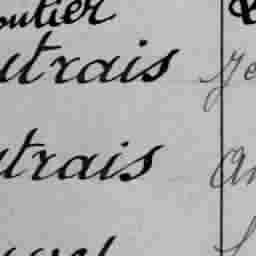 outier
utrais Je
utrais An